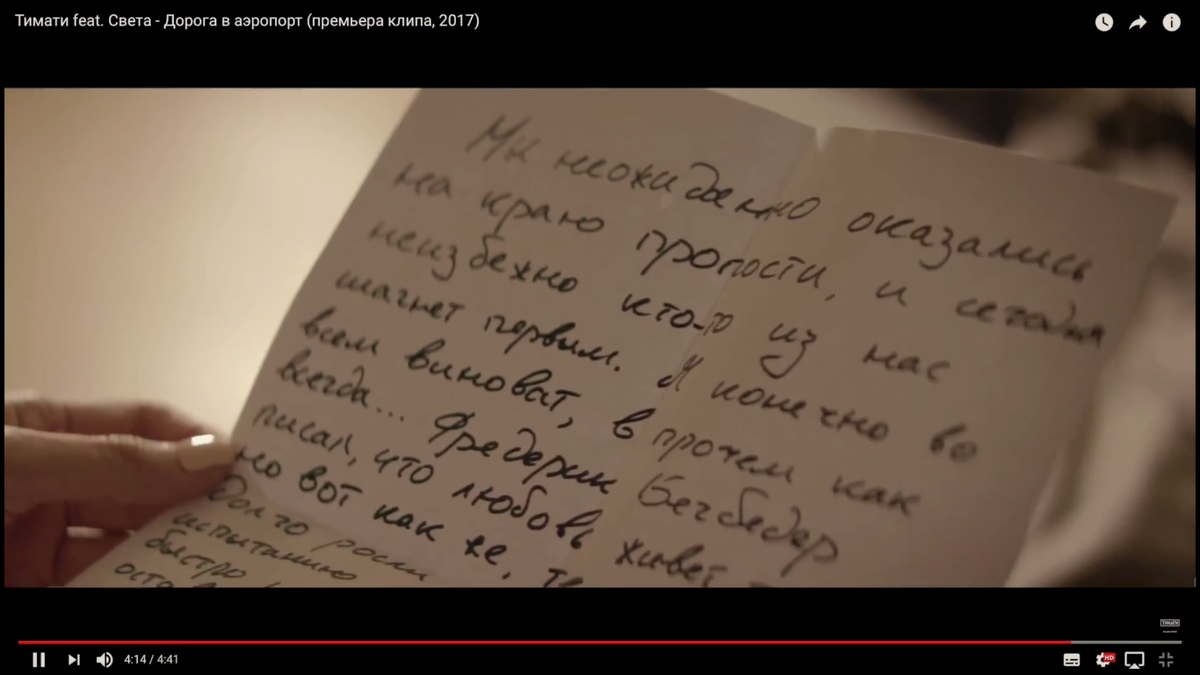 Тимати feat. Света - Дорога в аэропорт (премьера клипа, 2017)
Мы неожиданно оказались
на краю пропости, и сегодня
неизбежно кто-то из нас
шагнет первым. Я конечно во
всем виноват, в прочем как
всегда... Фредерик Бегбедер
писал, что любовь живет
но вот как же,
Долго
испытанию
быстро
ТИМАТИ
4:14 / 4:41
HD